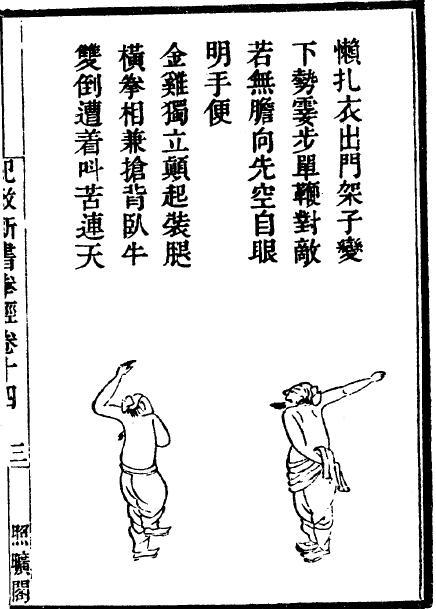 懶扎衣出門架子變
下勢霎步單鞭對敵
若無膽向先空自眼
明手便
金雞獨立顛起裝腿
橫拳相兼搶背臥牛
雙倒遭着叫苦連天
紀效新書拳經卷十四 三
照曠閣